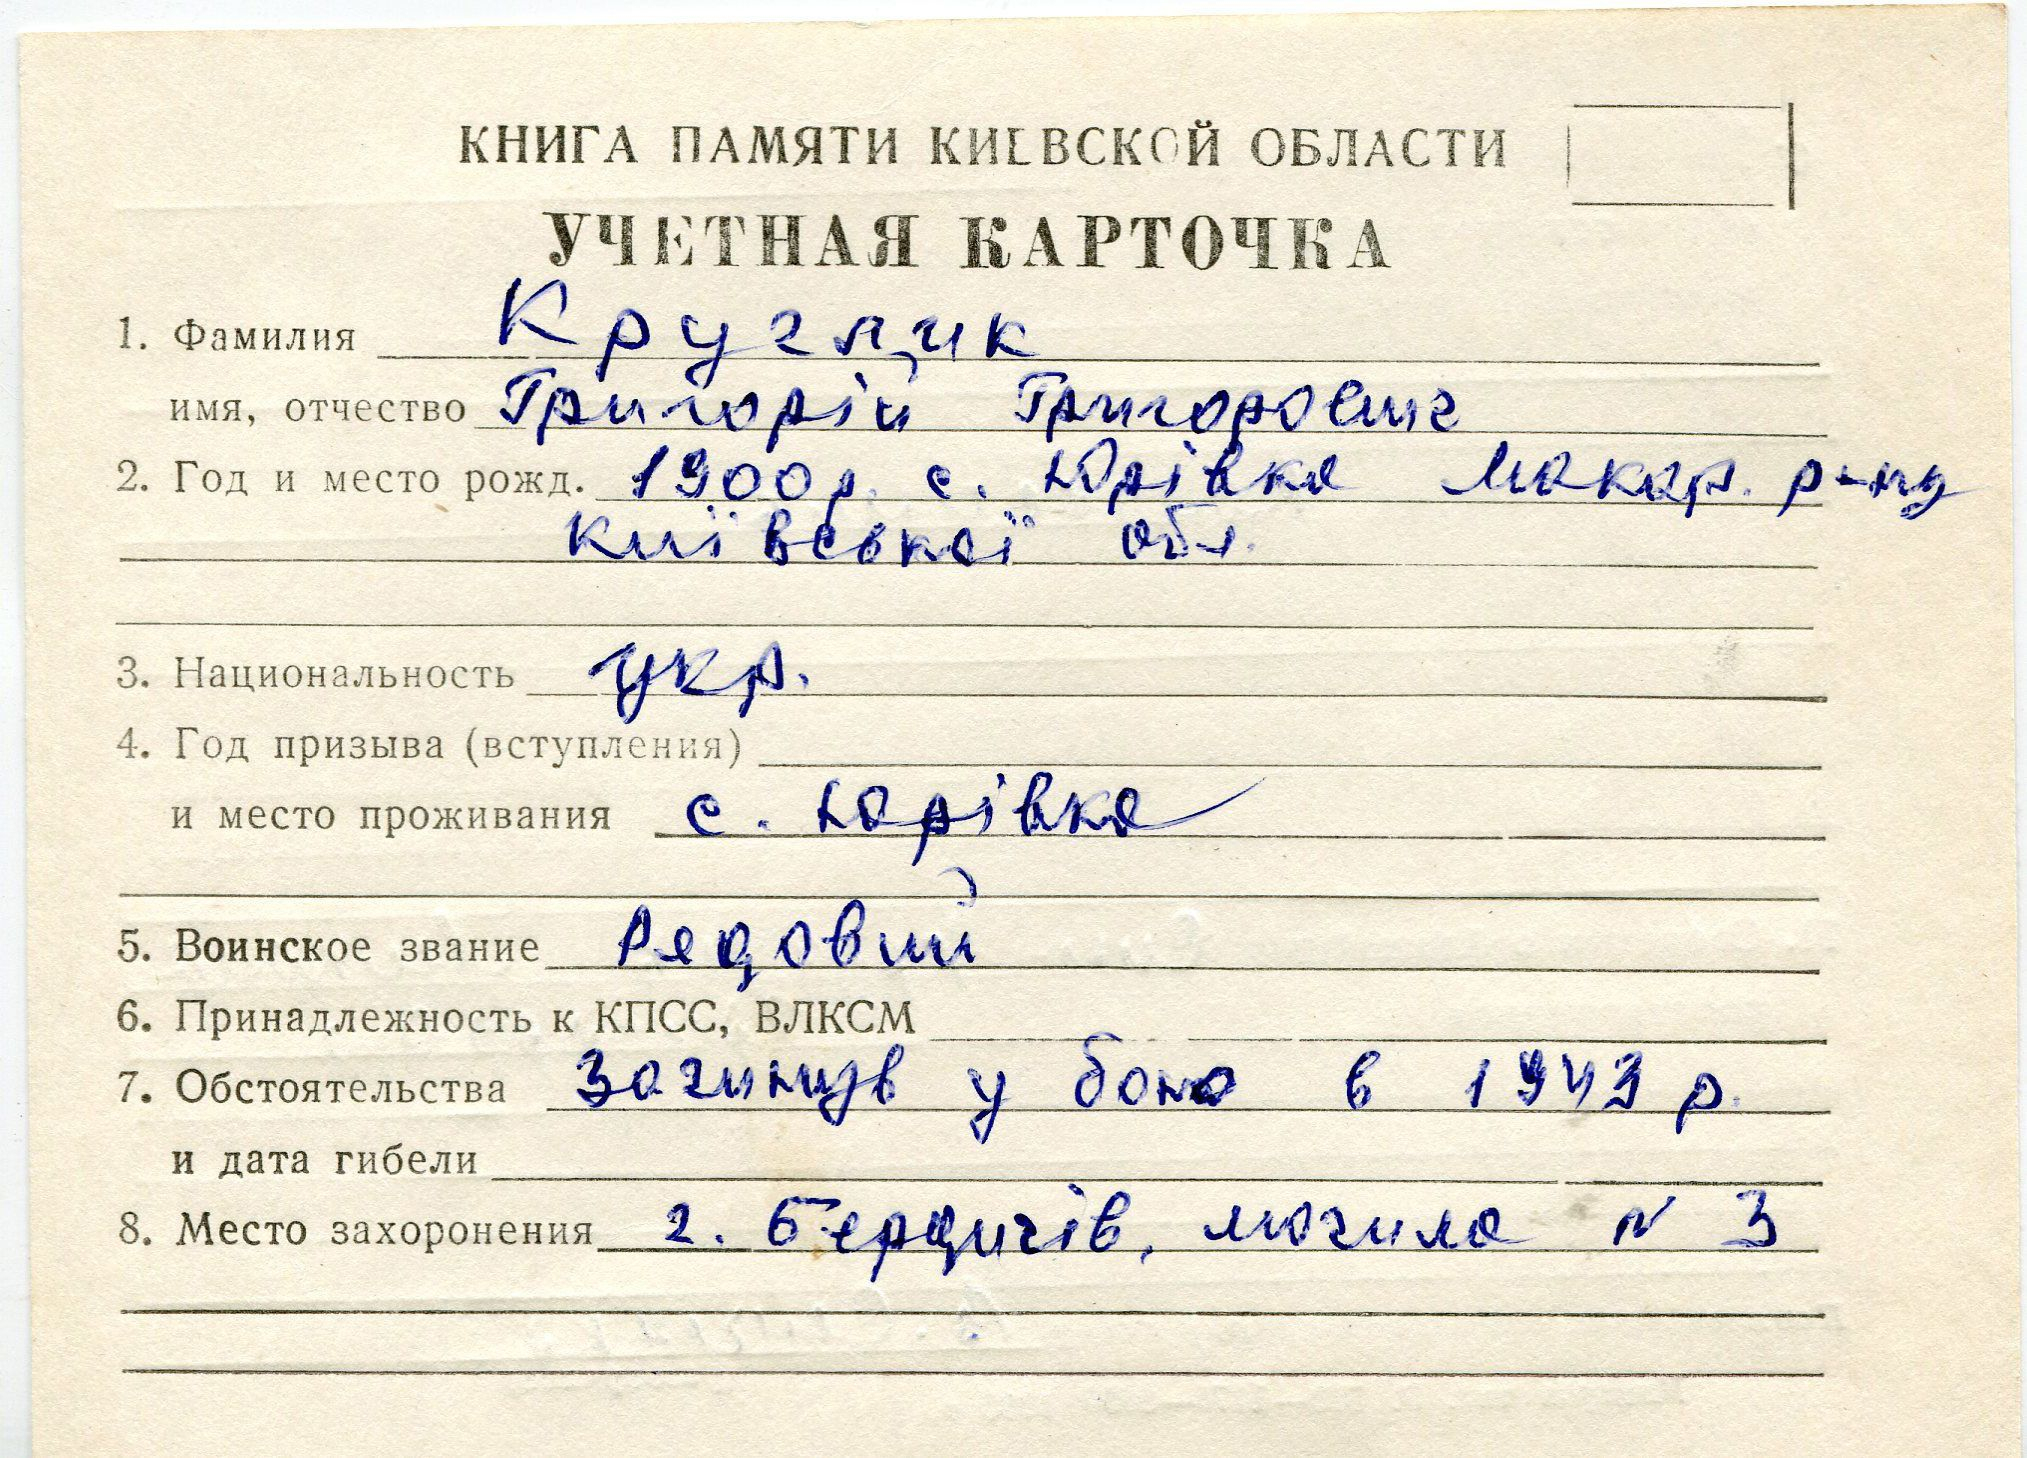 КНИГА ПАМЯТИ КИЕВСКОЙ ОБЛАСТИ
УЧЕТНАЯ КАРТОЧКА
1. Фамилия Круглик
имя, отчество Григорій Григорович
2. Год и место рожд. 1900р. с. Юрівка Макар. р-ну
Київської обл.
3. Национальность укр.
4. Год призыва (вступления)
и место проживания с. Юрівка
5. Воинское звание Рядовий
6. Принадлежность к КПСС, ВЛКСМ
7. Обстоятельства Загинув у бою в 1943 р.
и дата гибели
8. Место захоронения г. Бердичів, могила N 3